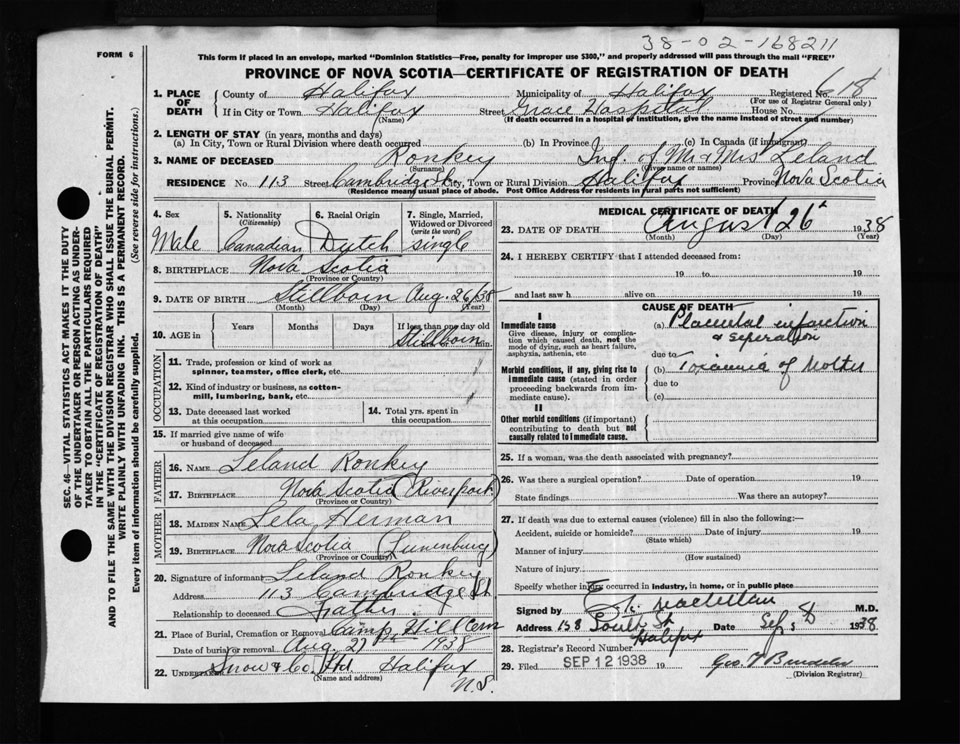 38-02-168211
FORM 6
This form if placed in an envelope, marked "Dominion Statistics—Free, penalty for improper use $300," and properly addressed will pass through the mail "FREE"
PROVINCE OF NOVA SCOTIA—CERTIFICATE OF REGISTRATION OF DEATH
1. PLACE OF DEATH
County of Halifax Municipality of Halifax Registered No. 618
(For use of Registrar General only)
If in City or Town Halifax Street Grace Hospital House No.
(Name) (If death occurred in a hospital or institution, give the name instead of street and number)
2. LENGTH OF STAY (in years, months and days)
(a) In City, Town or Rural Division where death occurred (b) In Province (c) In Canada (if immigrant)
3. NAME OF DECEASED Ronkey Inf. of Mr & Mrs Leland
(Surname) (Given name or names)
RESIDENCE No. 113 Street Cambridge St. City, Town or Rural Division Halifax Province Nova Scotia
(Residence means usual place of abode. Post Office Address for residents in rural parts not sufficient)
4. Sex
Male
5. Nationality
(Citizenship)
Canadian
6. Racial Origin
Dutch
7. Single, Married, Widowed or Divorced
(write the word)
single
8. BIRTHPLACE Nova Scotia
(Province or Country)
9. DATE OF BIRTH Stillborn Aug. 26/38
(Month) (Day) (Year)
10. AGE in Years Months Days If less than one day old
Stillborn min.
OCCUPATION
11. Trade, profession or kind of work as
spinner, teamster, office clerk, etc. "
12. Kind of industry or business, as cotton-
mill, lumbering, bank, etc. "
13. Date deceased last worked
at this occupation
14. Total yrs. spent in
this occupation
15. If married give name of wife
or husband of deceased
FATHER
16. NAME Leland Ronkey
17. BIRTHPLACE Nova Scotia (Riverport)
(Province or Country)
MOTHER
18. MAIDEN NAME Lela Herman
19. BIRTHPLACE Nova Scotia (Lunenburg)
(Province or Country)
20. Signature of informant Leland Ronkey
Address 113 Cambridge St
Relationship to deceased Father.
21. Place of Burial, Cremation or Removal Camp Hill Cem
Date of burial or removal Aug. 27 1938
22. UNDERTAKER Snow & Co. Ltd. Halifax
(Name and address) N.S.
MEDICAL CERTIFICATE OF DEATH
23. DATE OF DEATH August 26 1938
(Month) (Day) (Year)
24. I HEREBY CERTIFY that I attended deceased from:
19 to 19
and last saw h alive on 19
CAUSE OF DEATH
I
Immediate cause
Give disease, injury or complication which caused death, not the mode of dying, such as heart failure, asphyxia, asthenia, etc
(a) Placental infarction
& seperation
due to
Morbid conditions, if any, giving rise to immediate cause (stated in order proceeding backwards from immediate cause).
(b) Toxaemia of Mother
due to
(c)
II
Other morbid conditions (if important) contributing to death but not causally related to immediate cause.
25. If a woman, was the death associated with pregnancy?
26. Was there a surgical operation? Date of operation 19
State findings Was there an autopsy?
27. If death was due to external causes (violence) fill in also the following:—
Accident, suicide or homicide? Date of injury 19
(State which)
Manner of injury
(How sustained)
Nature of injury
Specify whether injury occurred in industry, in home, or in public place
Signed by MacLellan M.D.
Address 158 South St Date Sep 8 1938
Halifax
28. Registrar's Record Number
29. Filed SEP 12 1938 19
(Division Registrar)
SEC. 46—VITAL STATISTICS ACT MAKES IT THE DUTY
OF THE UNDERTAKER OR PERSON ACTING AS UNDER-
TAKER TO OBTAIN ALL THE PARTICULARS REQUIRED
IN THE "CERTIFICATE OF REGISTRATION OF DEATH"
AND TO FILE THE SAME WITH THE DIVISION REGISTRAR WHO SHALL ISSUE THE BURIAL PERMIT.
WRITE PLAINLY WITH UNFADING INK. THIS IS A PERMANENT RECORD.
Every item of information should be carefully supplied. (See reverse side for instructions.)